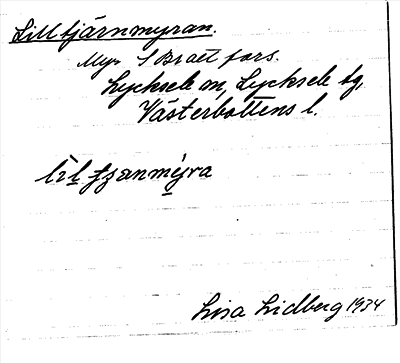 Lilltjärnmyran.
Myr S Braet fors.
Lycksele sn, Lycksele tg,
Västerbottens l.
lìl tjanmýra
Lisa Lidberg 1934